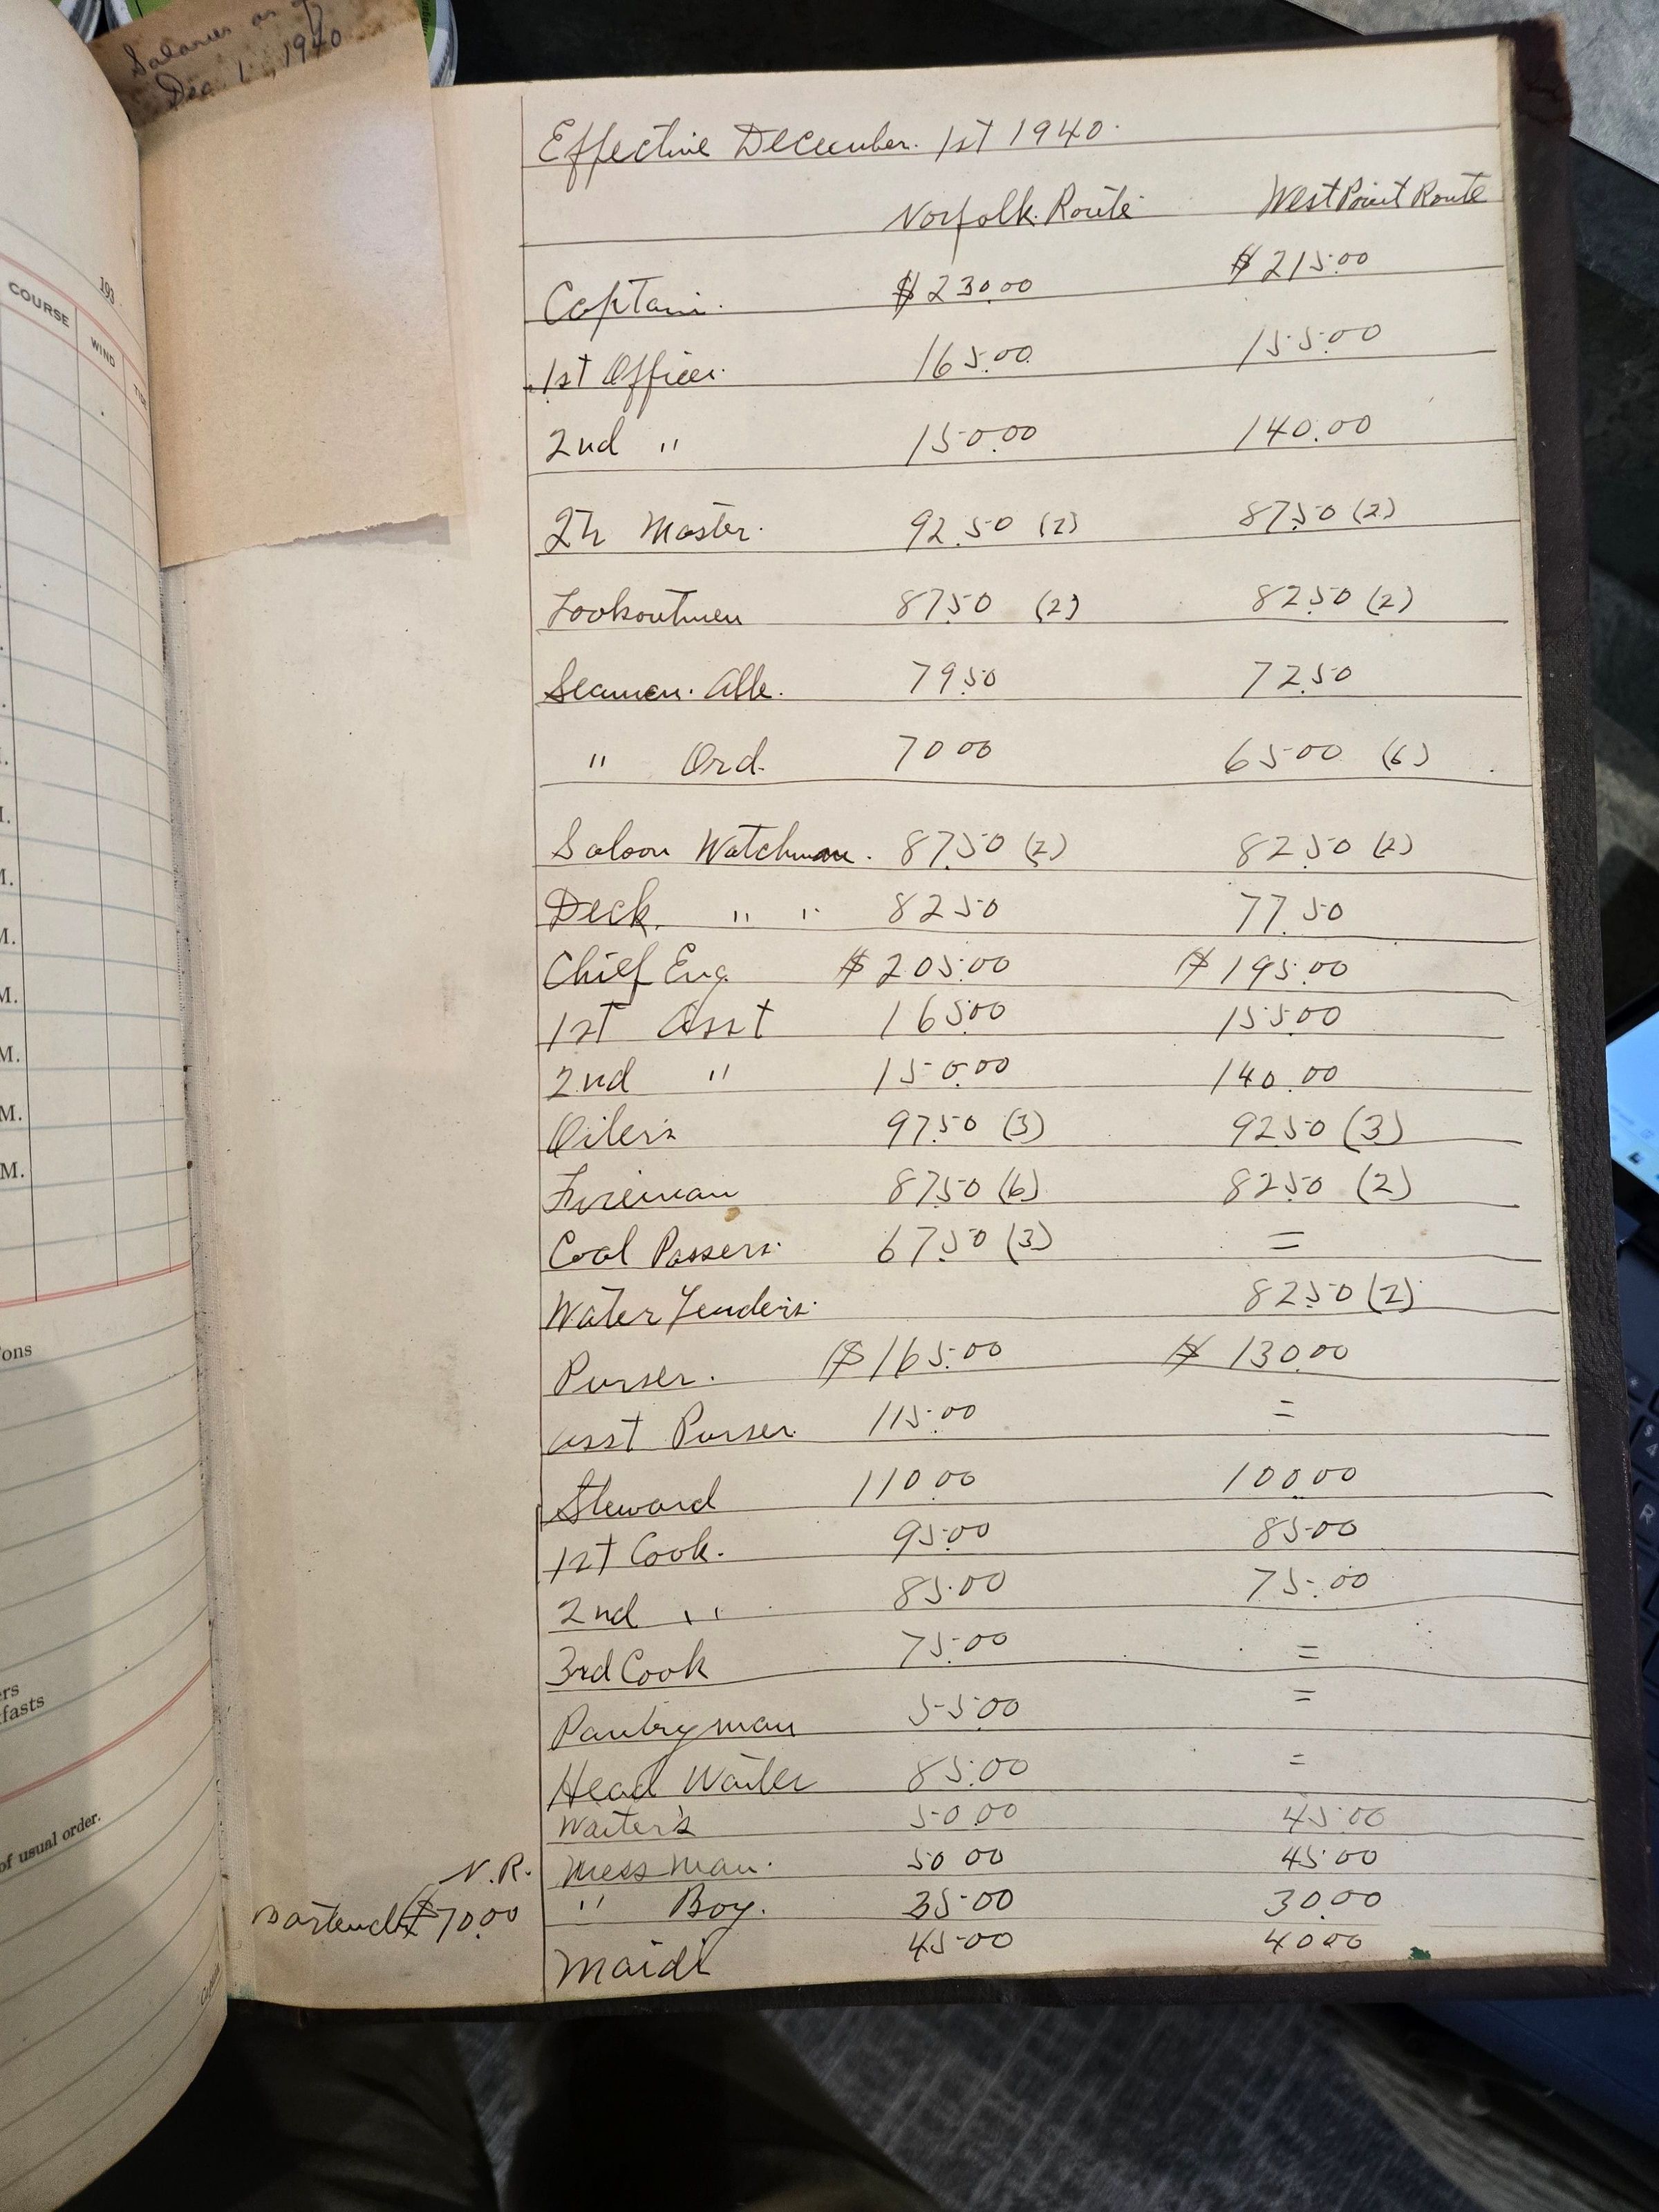 Salaries as of
Dec. 1, 1940
193
COURSE
WIND
M.
M.
M.
M.
M.
M.
ons
ers
fasts
of usual order.
Effective December. 1st 1940.
Norfolk. Route West Point Route
Captain. $230.00 $215.00
1st Officer. 165.00 155.00
2nd " 150.00 140.00
Qtr Master. 92.50 (2) 87.50 (2)
Lookoutmen 87.50 (2) 82.50 (2)
Seamen. Able. 79.50 72.50
" Ord. 70 00 65 00 (6)
Saloon Watchman. 87.50 (2) 82.50 (2)
Deck. " " 82 50 77.50
Chief Eng. $205.00 $195.00
1st Asst 165.00 155.00
2nd " 150.00 140.00
Oilers 97.50 (3) 92.50 (3)
Fireman 87.50 (6) 82.50 (2)
Coal Passers. 67.50 (3) =
Water Tenders. 82.50 (2)
Purser. $165.00 $130.00
Asst Purser. 115.00 =
Steward 110.00 100.00
1st Cook. 95.00 85.00
2nd " 85.00 75.00
3rd Cook 75.00 =
Pantryman 55.00 =
Head Waiter 85.00 =
Waiter's 50.00 45.00
N.R. Mess man. 50 00 45.00
Bartender $70.00 " Boy. 35.00 30.00
Maids 45.00 40.00